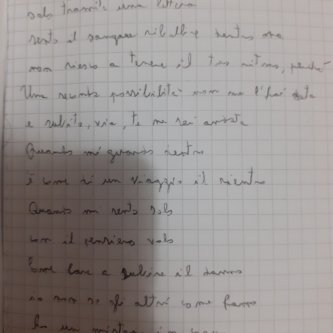 solo tramite una lettera
sento il sangue ribollire dentro ora
non riesco a tenere il tuo ritmo, perché
Una seconda possibilità non me l'hai data
e subito, via, te ne sei andata
Quando mi guardo dentro
è come se un viaggio il rientro
Quando mi sento solo
con il pensiero volo
come fare a guarire il danno
io non so gli altri come fanno